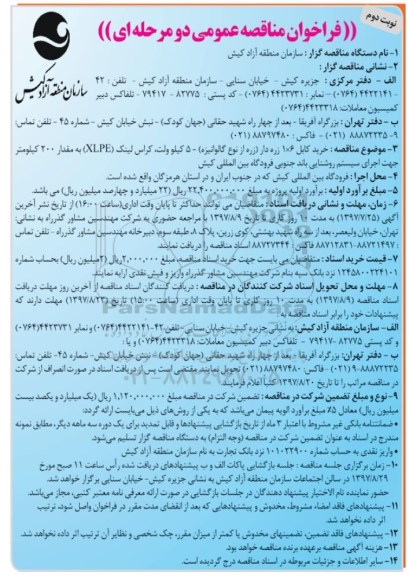 نوبت دوم
((فراخوان مناقصه عمومی دو مرحله ای))
سازمان منطقه آزاد کیش
۱- نام دستگاه مناقصه گزار: سازمان منطقه آزاد کیش
۲- نشانی مناقصه گزار:
الف - دفتر مرکزی: جزیره کیش - خیابان سنایی - سازمان منطقه آزاد کیش - تلفن: ۴۲
-۴۴۲۲۱۴۱ (۰۷۶۴) - نمابر: ۴۴۲۳۷۳۱ (۰۷۶۴) - کد پستی: ۸۲۷۷۵ - ۷۹۴۱۷ - تلفاکس دبیر
کمیسیون معاملات: ۴۴۲۳۳۱۸(۰۷۶۴)
ب - دفتر تهران: بزرگراه آفریقا - بعد از چهار راه شهید حقانی (جهان کودک) - نبش خیابان کیش - شماره ۴۵ - تلفن تماس:
۹ - ۸۸۸۷۲۲۳۵ (۰۲۱) - فاکس: ۸۸۷۹۷۴۸۰ (۰۲۱)
۳- موضوع مناقصه: خرید کابل ۱×۶ زره دار (زره از نوع گالوانیزه) - ۵ کیلو ولت، کراس لینک (XLPE) به مقدار ۲۰۰ کیلومتر
جهت اجرای سیستم روشنایی باند جنوبی فرودگاه بین المللی کیش
۴- محل اجرا: فرودگاه بین المللی کیش که در جنوب ایران و در استان هرمزگان واقع شده است.
۵- مبلغ برآورد اولیه: برآورد اولیه پروژه به مبلغ ۲۲,۴۰۰,۰۰۰,۰۰۰ ریال (۲۲ میلیارد و چهارصد میلیون ریال) می باشد.
۶- زمان، مهلت و نشانی دریافت اسناد: متقاضیان می توانند حداکثر تا پایان وقت اداری(ساعت ۱۶:۰۰) از تاریخ نشر آخرین
آگهی (۱۳۹۷/۷/۲۵) به مدت
تهران، خیابان ولیعصر، بعد از
۷- قیمت خرید اسناد: متقاضیان می بایست جهت خرید اسناد مناقصه، مبلغ ۲,۰۰۰,۰۰۰ ریال (دو میلیون ریال) بحساب شماره
نزد بانک سپه بنام شرکت مهندسین مشاور گذرراه واریز و فیش نقدی ارایه نمایند.
۸- مهلت و محل تحویل اسناد شرکت کنندگان در مناقصه: دریافت کنندگان اسناد مناقصه از آخرین روز مهلت دریافت
اسناد مناقصه (۱۳۹۷/۸/۹) به مدت ۱۰ روز کاری تا پایان وقت اداری (ساعت ۱۵:۰۰) تاریخ (۱۳۹۷/۸/۲۳) مهلت دارند که
پیشنهادات خود را برابر اسناد مناقصه به
الف- سازمان منطقه آزاد کیش: به نشانی جزیره کیش- خیابان سنایی - تلفن ۴۲-۴۴۲۲۱۴۱(۰۷۶۴) و نمابر ۴۴۲۳۷۳۱(۰۷۶۴)
و کد پستی ۸۲۷۷۵ - ۷۹۴۱۷ - تلفاکس دبیر کمیسیون معاملات ۴۴۲۳۳۱۸(۰۷۶۴) و یا:
ب - دفتر تهران: بزرگراه آفریقا - بعد از چهار راه شهید حقانی (جهان کودک) - نبش خیابان کیش - شماره ۴۵- تلفن تماس:
۹-۸۸۸۷۲۲۳۵ (۰۲۱)- فاکس: ۸۸۷۹۷۴۸۰ (۰۲۱) تحویل نمایند. مقتضی است پس از دریافت اسناد در صورت انصراف از شرکت
در مناقصه مراتب را تا تاریخ ۱۳۹۷/۸/۲۰ کتباً اعلام فرمایند.
۹- نوع و مبلغ تضمین شرکت در مناقصه: تضمین شرکت در مناقصه مبلغ ۱,۱۲۰,۰۰۰,۰۰۰ ریال (یک میلیارد و یکصد بیست
میلیون ریال) معادل ۵٪ مبلغ برآورد الویه پیمان می باشد که به یکی از روش‌های ذیل می‌بایست ارائه گردد:
ضمانتنامه بانکی غیر مشروط با اعتبار ۳ ماه از تاریخ بازگشایی پیشنهادها و قابل تمدید برای یک دوره سه ماهه دیگر، مطابق نمونه
مندرج در اسناد به عنوان تضمین شرکت در مناقصه (وجه التزام) به دستگاه مناقصه گزار تسلیم می‌شود.
واریز نقدی به حساب شماره ۱۰۱۰۲۲۹۰۰ نزد بانک تجارت به نام سازمان منطقه آزاد کیش
۱۰- زمان برگزاری جلسه مناقصه: جلسه بازگشایی پاکات الف و ب پیشنهادهای دریافت شده رأس ساعت ۱۱ صبح مورخ
۱۳۹۷/۸/۲۹ در سالن اجتماعات سازمان منطقه آزاد کیش به نشانی جزیره کیش- خیابان سنایی برگزار خواهد شد.
حضور نماینده تام الاختیار پیشنهاد دهندگان در جلسات بازگشایی در صورت ارائه معرفی نامه معتبر کتبی، مجاز می‌باشد.
۱۱- پیشنهادهای فاقد امضاء، مشروط، مخدوش و پیشنهادهایی که بعد از انقضای مدت مقرر در فراخوان واصل شود، ترتیب
اثر داده نخواهد شد.
۱۲- پیشنهادهای فاقد تضمین، تضمینهای مخدوش یا کمتر از میزان مقرر، چک شخصی و نظایر آن ترتیب اثر داده نخواهد شد.
۱۳- هزینه آگهی مناقصه برعهده برنده مناقصه خواهد بود.
۱۴- سایر اطلاعات و جزئیات مربوطه در اسناد مناقصه درج گردیده است.